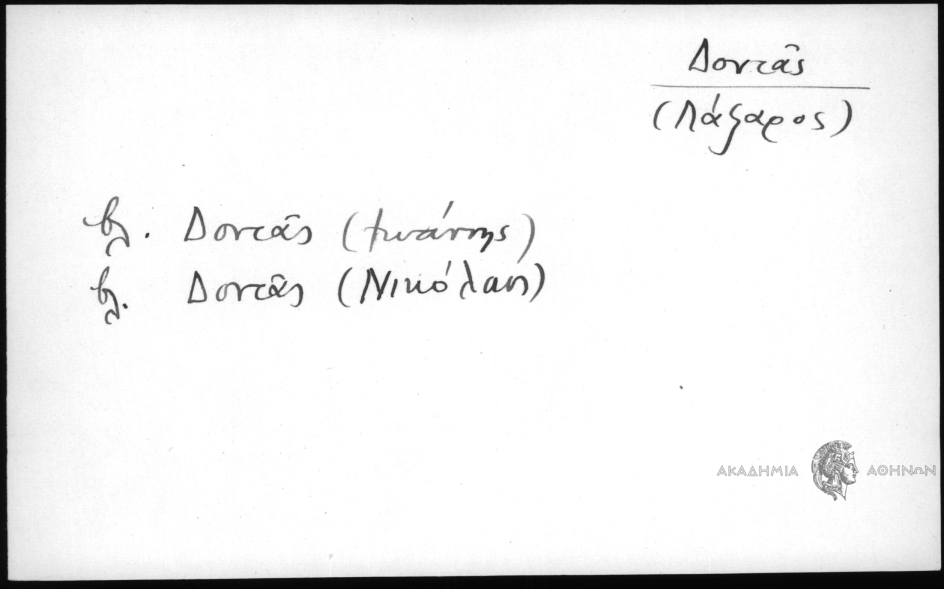 Δοντᾶς
(Λάζαρος)
βλ. Δοντᾶς (Ιωάννης)
βλ. Δοντᾶς (Νικόλαος)
ΑΚΑΔΗΜΙΑ ΑΘΗΝΩΝ